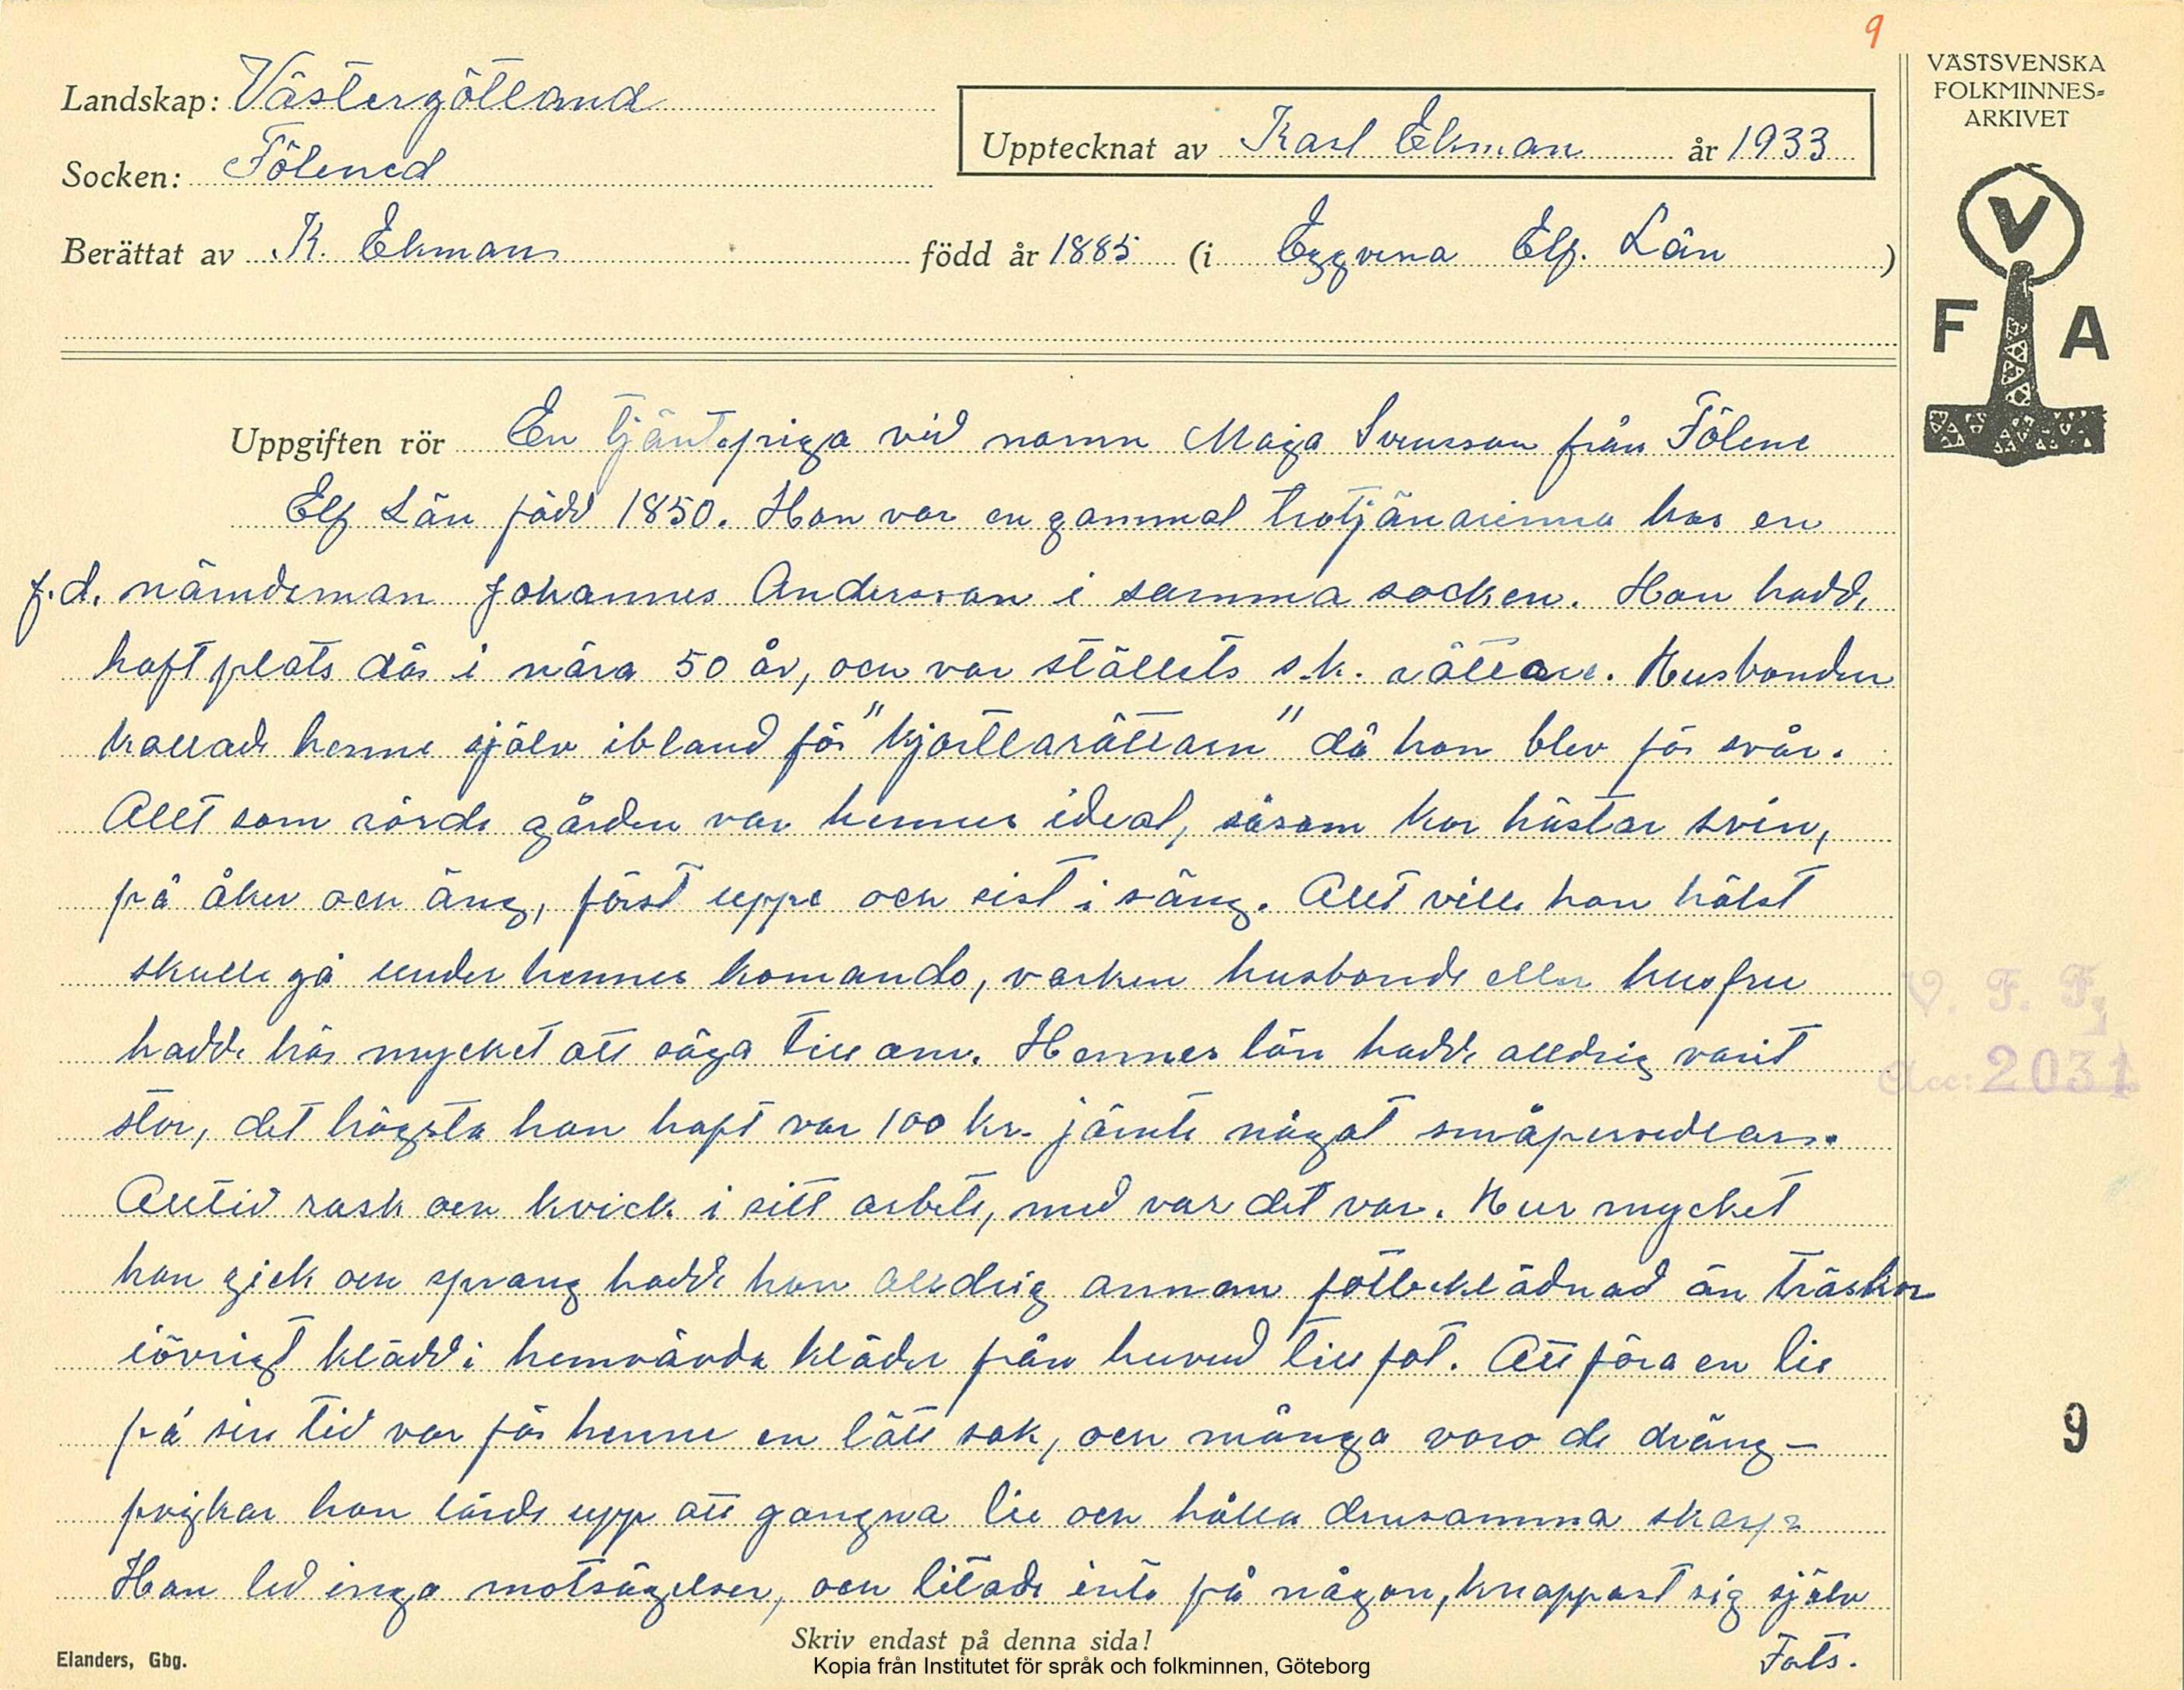 9
VÄSTSVENSKA
FOLKMINNES=
ARKIVET
Landskap: Västergötland
Upptecknat av Karl Ekman år 1933
Socken: Fölened
Berättat av K. Ekman född år 1885 (i Eggvena Elfs. Län)
V
F A
Uppgiften rör En tjäntepiga vid namn Maja Svensson från Fölene
Elfs Län född 1850. Hon var en gammal trotjänarinna hos en
f.d. nämdeman Johannes Andersson i samma socken. Hon hadde
haft plats där i nära 50 år, och var ställets s.k. rättare. Husbonden
kallade henne själv ibland för "kjortlarättarn" då hon blev för svår.
Allt som rörde gården var hennes ideal, såsom kor hästar svin,
på åker och äng, först uppe och sist i säng. Allt ville hon hälst
skulle gå under hennes komando, varken husbonde eller husfru
hadde här mycket att säga till om. Hennes lön hadde alldrig varit
stor, det högsta hon haft var 100 kr. jämte något småpersedlar.
Alltid rask och kvick i sitt arbete, med var det var. Hur mycket
hon gick och sprang hadde hon alldrig annan fotbeklädnad än träskor
iövrigt klädd i hemvävda kläder från huvud till fot. Att föra en lie
på sin tid var för henne en lätt sak, och många voro de dräng-
pojkar hon lärde upp att gangna lie och hålla densamma skarp
Hon led inga motsägelser, och litade inte på någon, knappast sig själv
Forts.
V. F. F.
Acc: 2031
9
Skriv endast på denna sida!
Elanders, Gbg.
Kopia från Institutet för språk och folkminnen, Göteborg